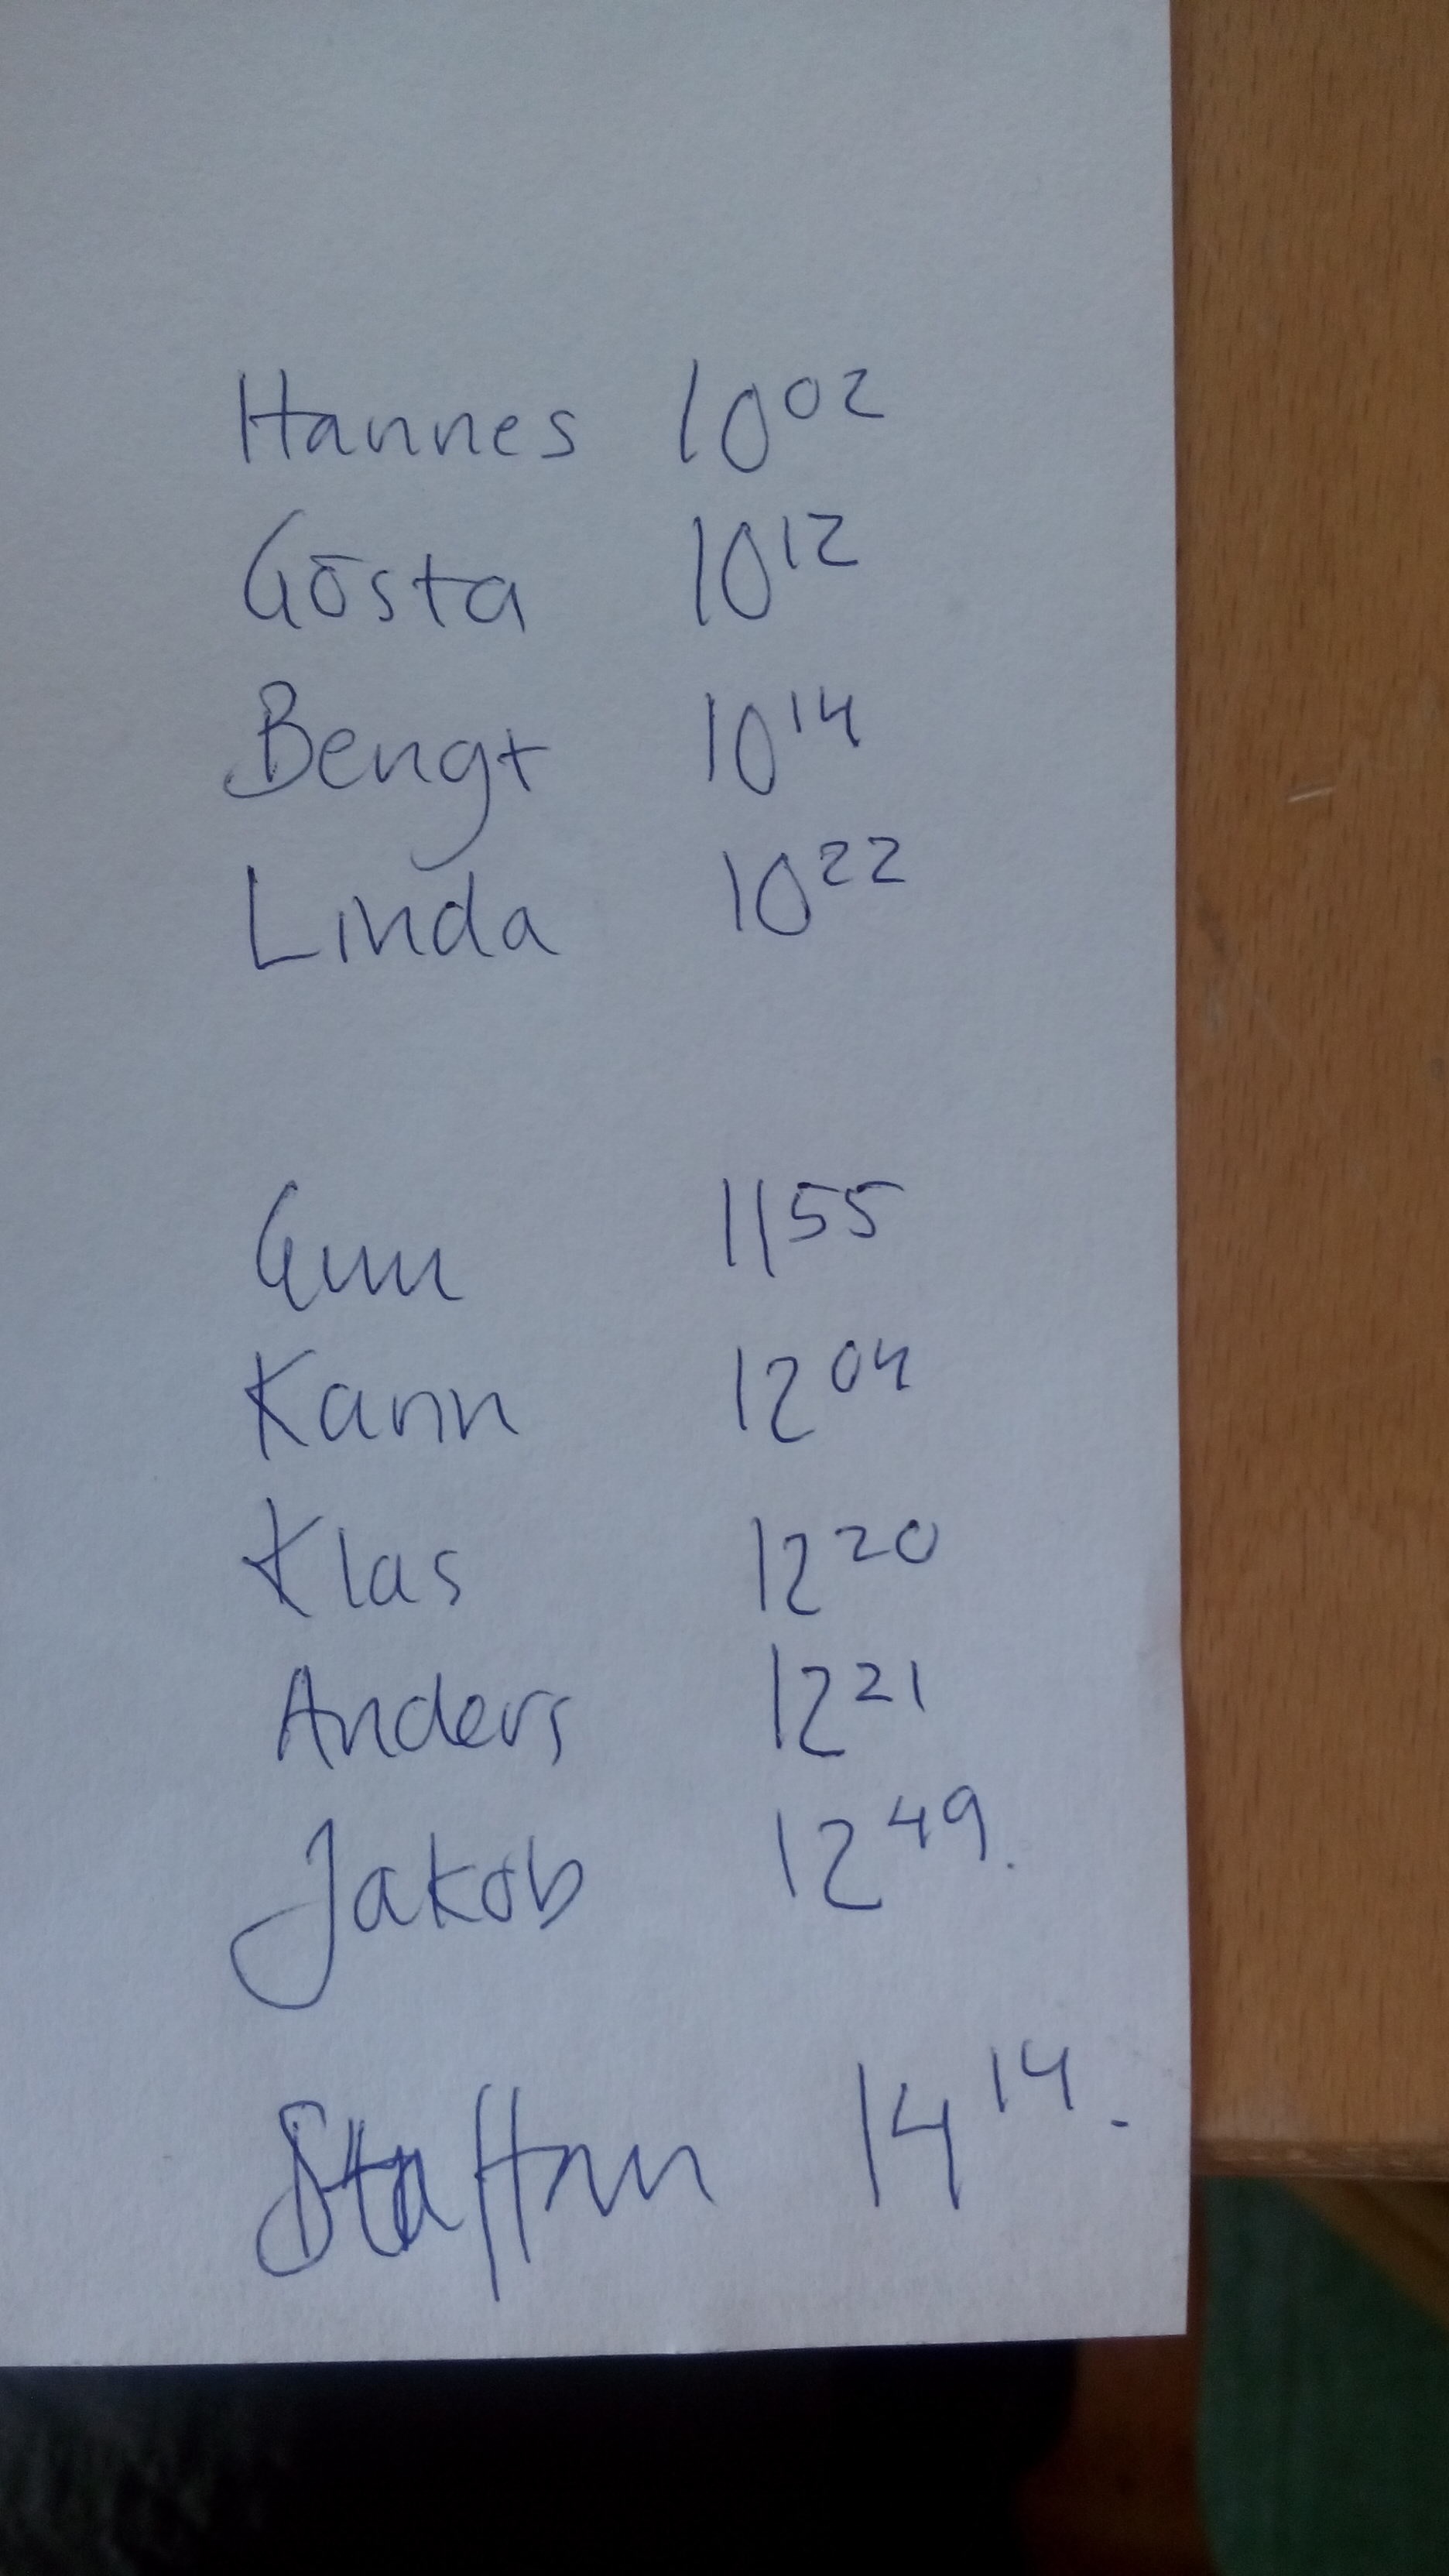 Hannes 10 02
Gösta 10 12
Bengt 10 14
Linda 10 22
Gun 11 55
Karin 12 04
Klas 12 20
Anders 12 21
Jakob 12 49.
Staffan 14 14.